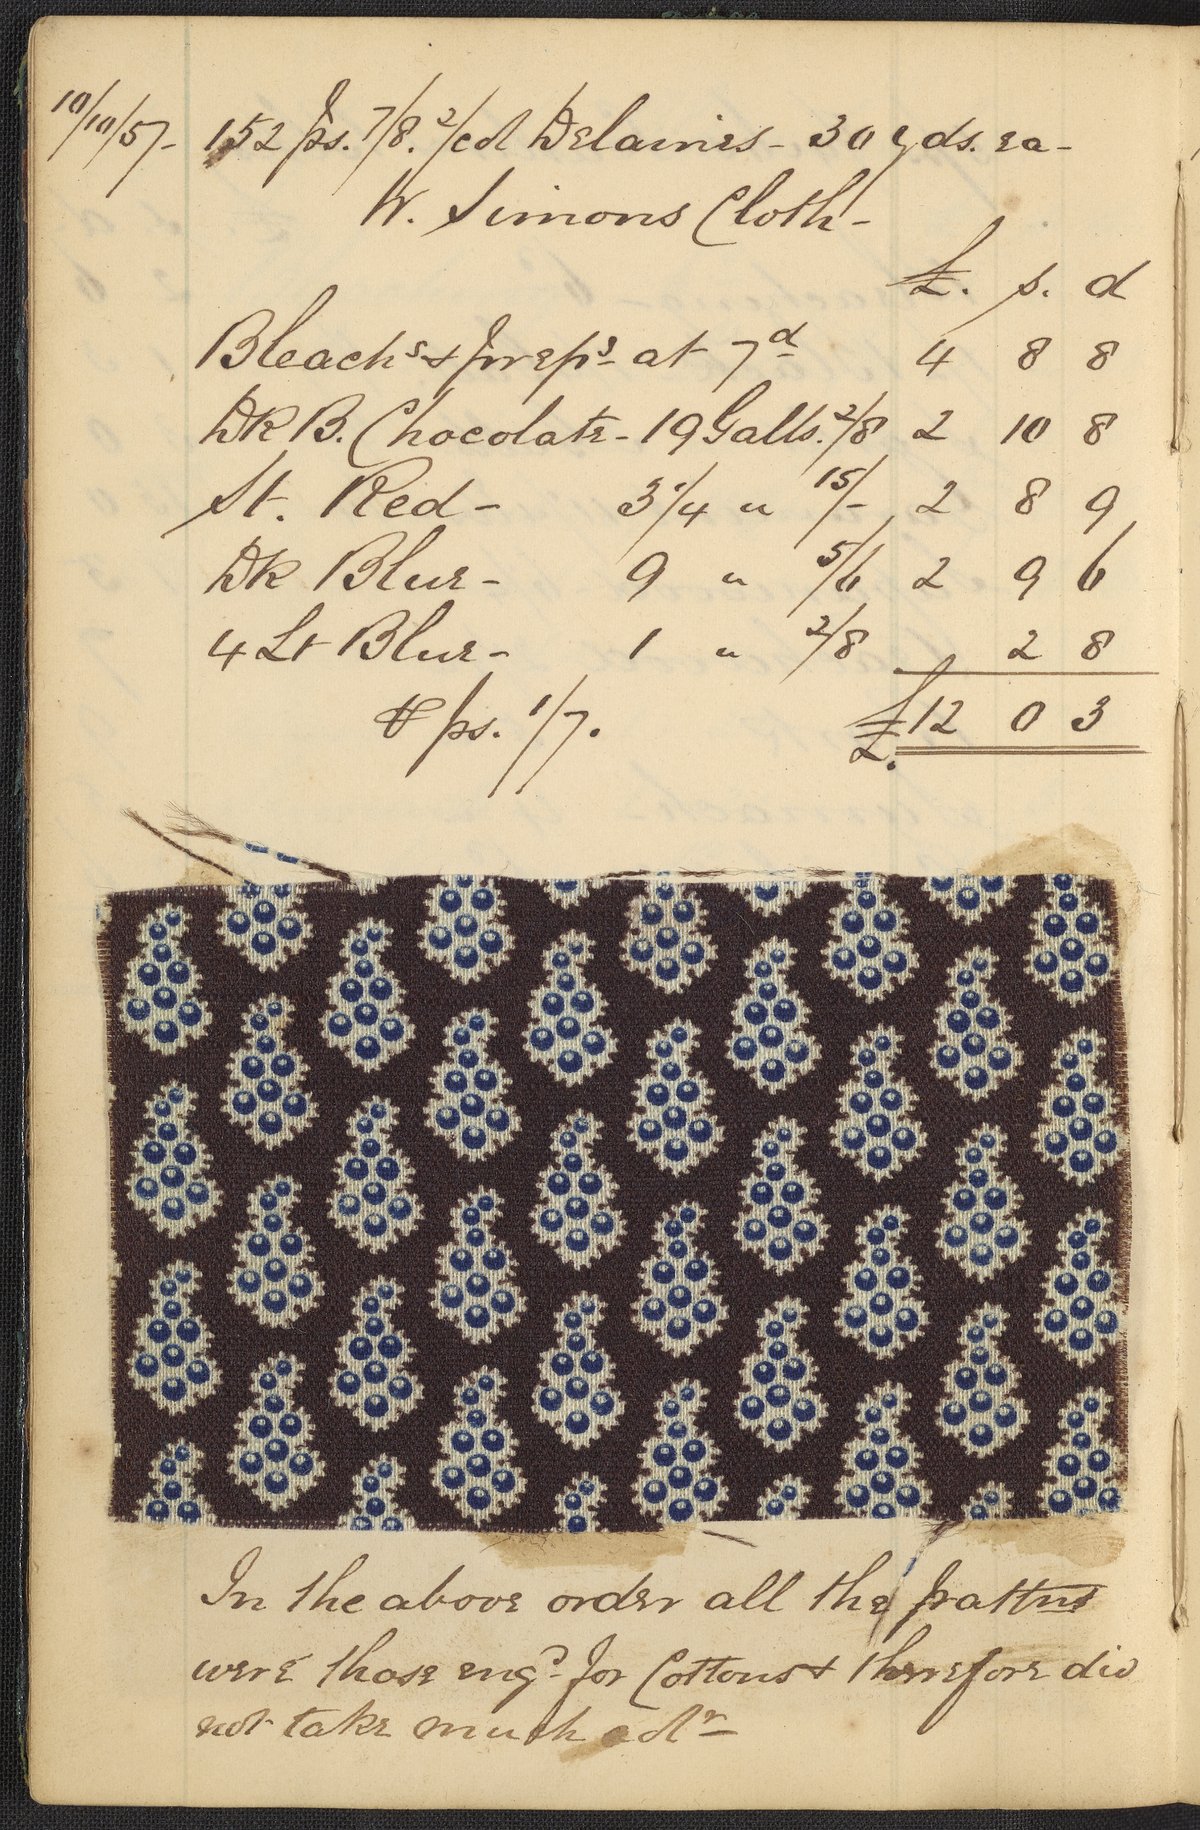 10/10/57- 152 ps. 7/8. 2/col Delaines - 30 yds. ea -
W. Simons Cloth -
£. s. d
Bleachs & preps at 7d 4 8 8
Dk B. Chocolate - 19 Galls. 2/8 2 10 8
St. Red - 3 1/4 " 15/- 2 8 9
Dk Blue - 9 " 5/6 2 9 6
4 Lt Blue - 1 " 2/8 2 8
ps. 1/7. £12 0 3
In the above order all the pattns
were those engd for Cottons & therefore did
not take much colr